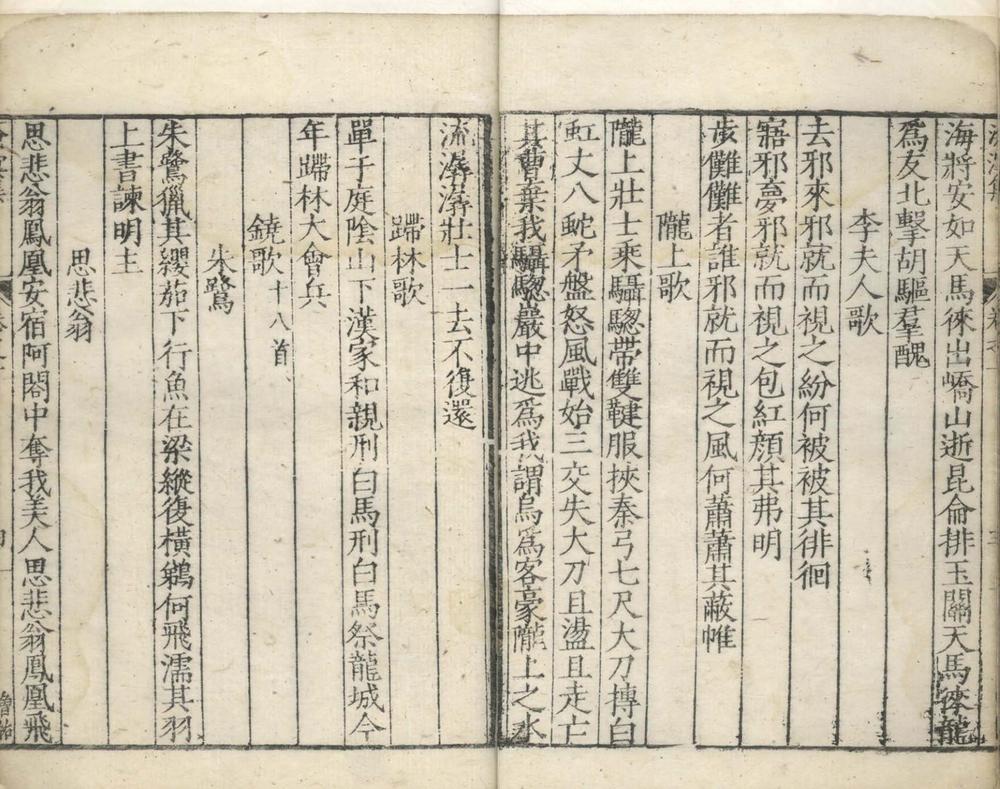 海將安如天馬徠出嶠山逝昆侖排玉關天馬徠龍
爲友北擊胡驅羣醜
李夫人歌
去邪來邪就而視之紛何被被其徘徊
寤邪夢邪就而視之包紅顏其弗明
步儺儺者誰邪就而視之風何蕭蕭其蔽帷
隴上歌
隴上壯士乘驦驄帶雙鞬服挾秦弓七尺大刀摶白
虹丈八蛇矛盤怒風戰始三交失大刀且盪且走亡
其曹棄我驦驄巖中逃爲我謂烏爲客豪隴上之水
流潺潺壯士一去不復還
蹛林歌
單于庭陰山下漢家和親刑白馬刑白馬祭龍城今
年蹛林大會兵
鐃歌十八首
朱鷺
朱鷺獵其纓茄下行魚在梁縱復橫鵜何飛濡其羽
上書諫明主
思悲翁
思悲翁鳳凰安宿阿閣中奪我美人思悲翁鳳凰飛